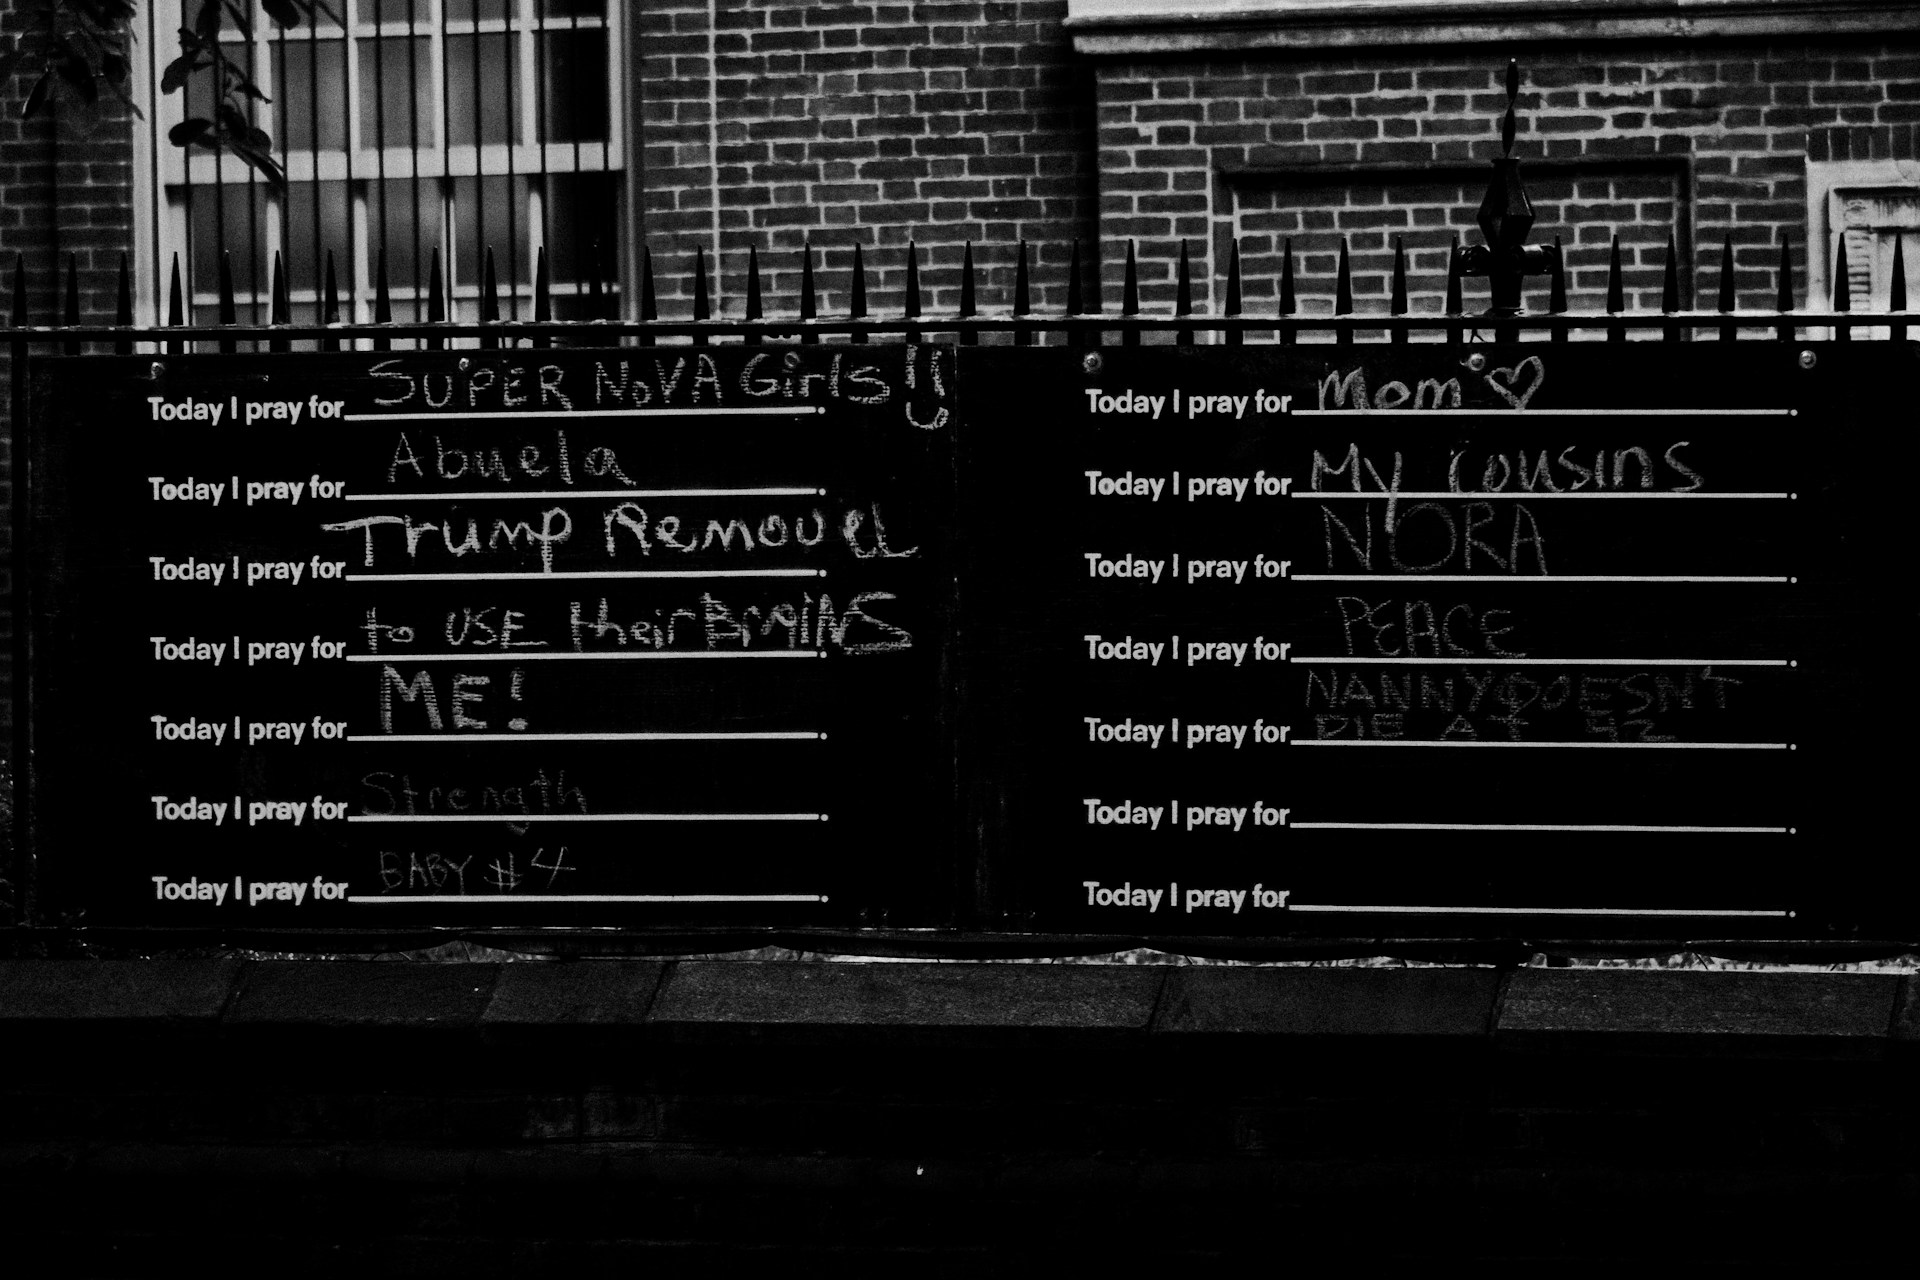 Today I pray for SUPER NOVA Girls!!
Today I pray for Abuela.
Today I pray for Trump Removel.
Today I pray for to USE their BRAINS.
Today I pray for ME!.
Today I pray for Strength.
Today I pray for BABY #4.
Today I pray for Mom ♡.
Today I pray for My cousins.
Today I pray for NORA.
Today I pray for PEACE.
NANNY DOESN'T
Today I pray for DIE AT 42.
Today I pray for .
Today I pray for .